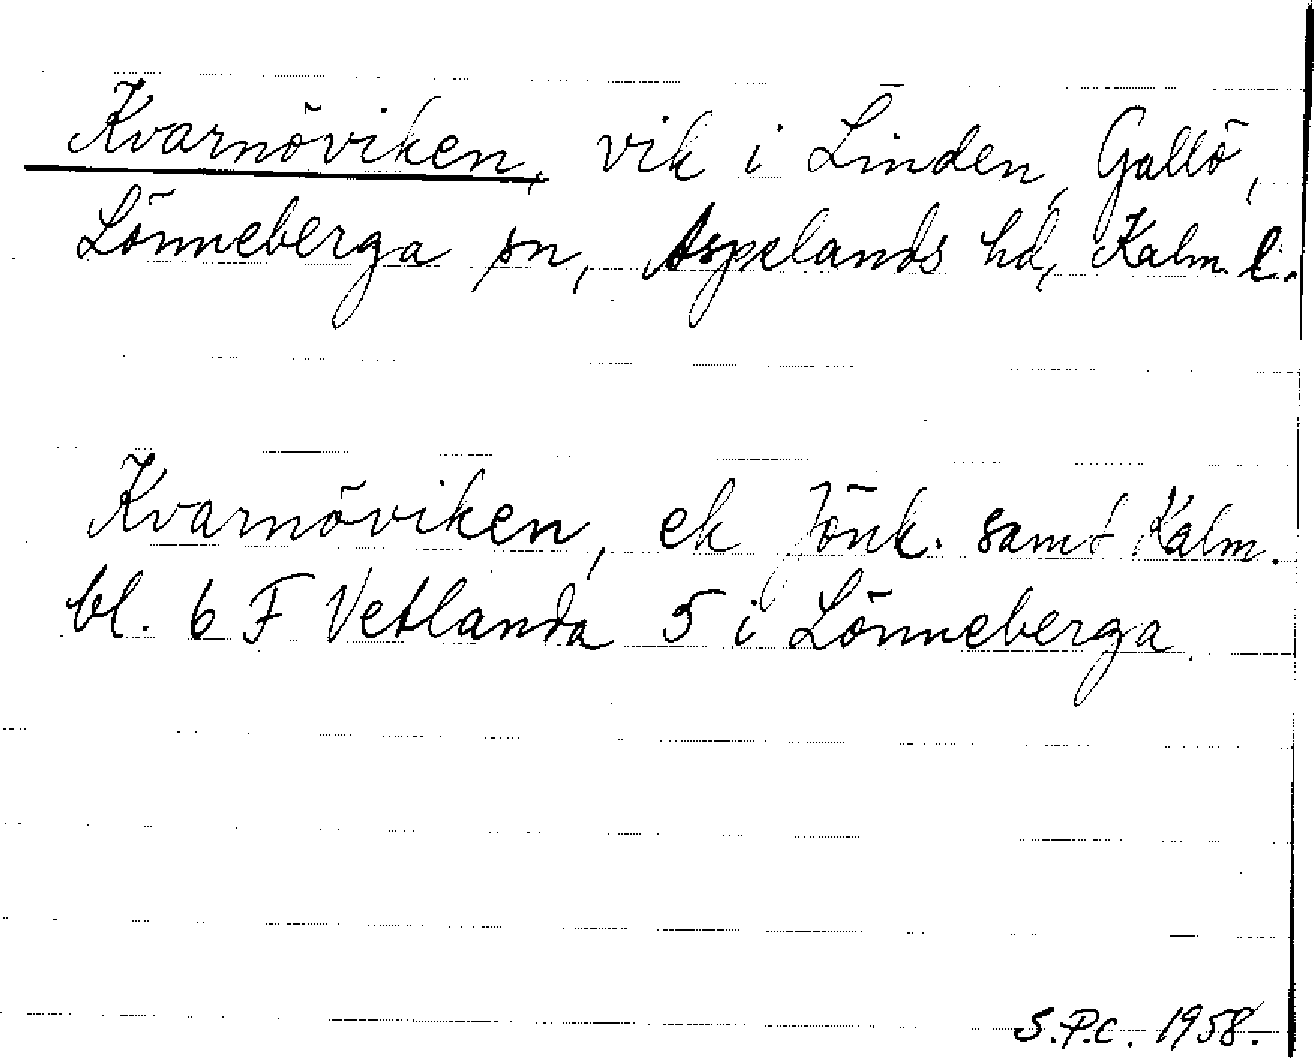 Kvarnöviken, vik i Linden, Gallö,
Lönneberga sn, Aspelands hd, Kalm. l.
Kvarnöviken, ek Jönk. samt Kalm.
bl. 6 F Vetlanda 5 i Lönneberga.
S.P.C. 1958.